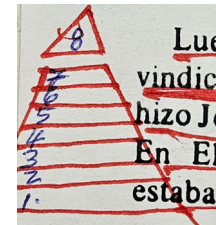 8
7
6
5
4
3
2
1.
Lue
vindic
hizo Je
En El
estaba